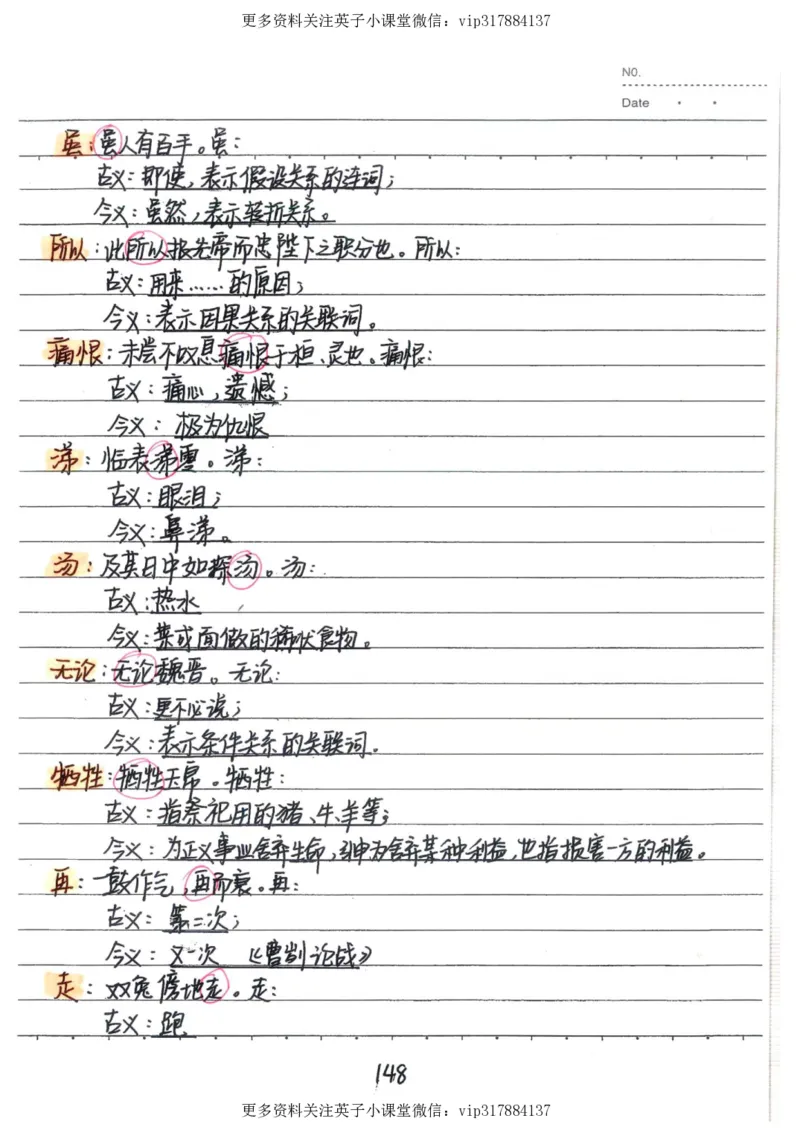 更多资料关注英子小课堂微信：vip317884137
NO.
Date
虽：虽人有百手。虽：
古义：即使，表示假设关系的连词；
今义：虽然，表示转折关系。
所以：此所以报先帝而忠陛下之职分也。所以：
古义：用来……的原因；
今义：表示因果关系的关联词。
痛恨：未尝不叹息痛恨于桓、灵也。痛恨：
古义：痛心，遗憾；
今义：极为仇恨
涕：临表涕零。涕：
古义：眼泪；
今义：鼻涕。
汤：及其日中如探汤。汤：
古义：热水
今义：菜或面做的稀状食物。
无论：无论魏晋。无论：
古义：更不必说；
今义：表示条件关系的关联词.
牺牲：牺牲玉帛。牺牲：
古义：指祭祀用的猪、牛、羊等；
今义：为正义事业舍弃生命，引申为舍弃某种利益，也指损害一方的利益。
再：一鼓作气，再而衰。再：
古义：第二次；
今义：又一次 《曹刿论战》
走：双兔傍地走。走：
古义：跑
148
更多资料关注英子小课堂微信：vip317884137